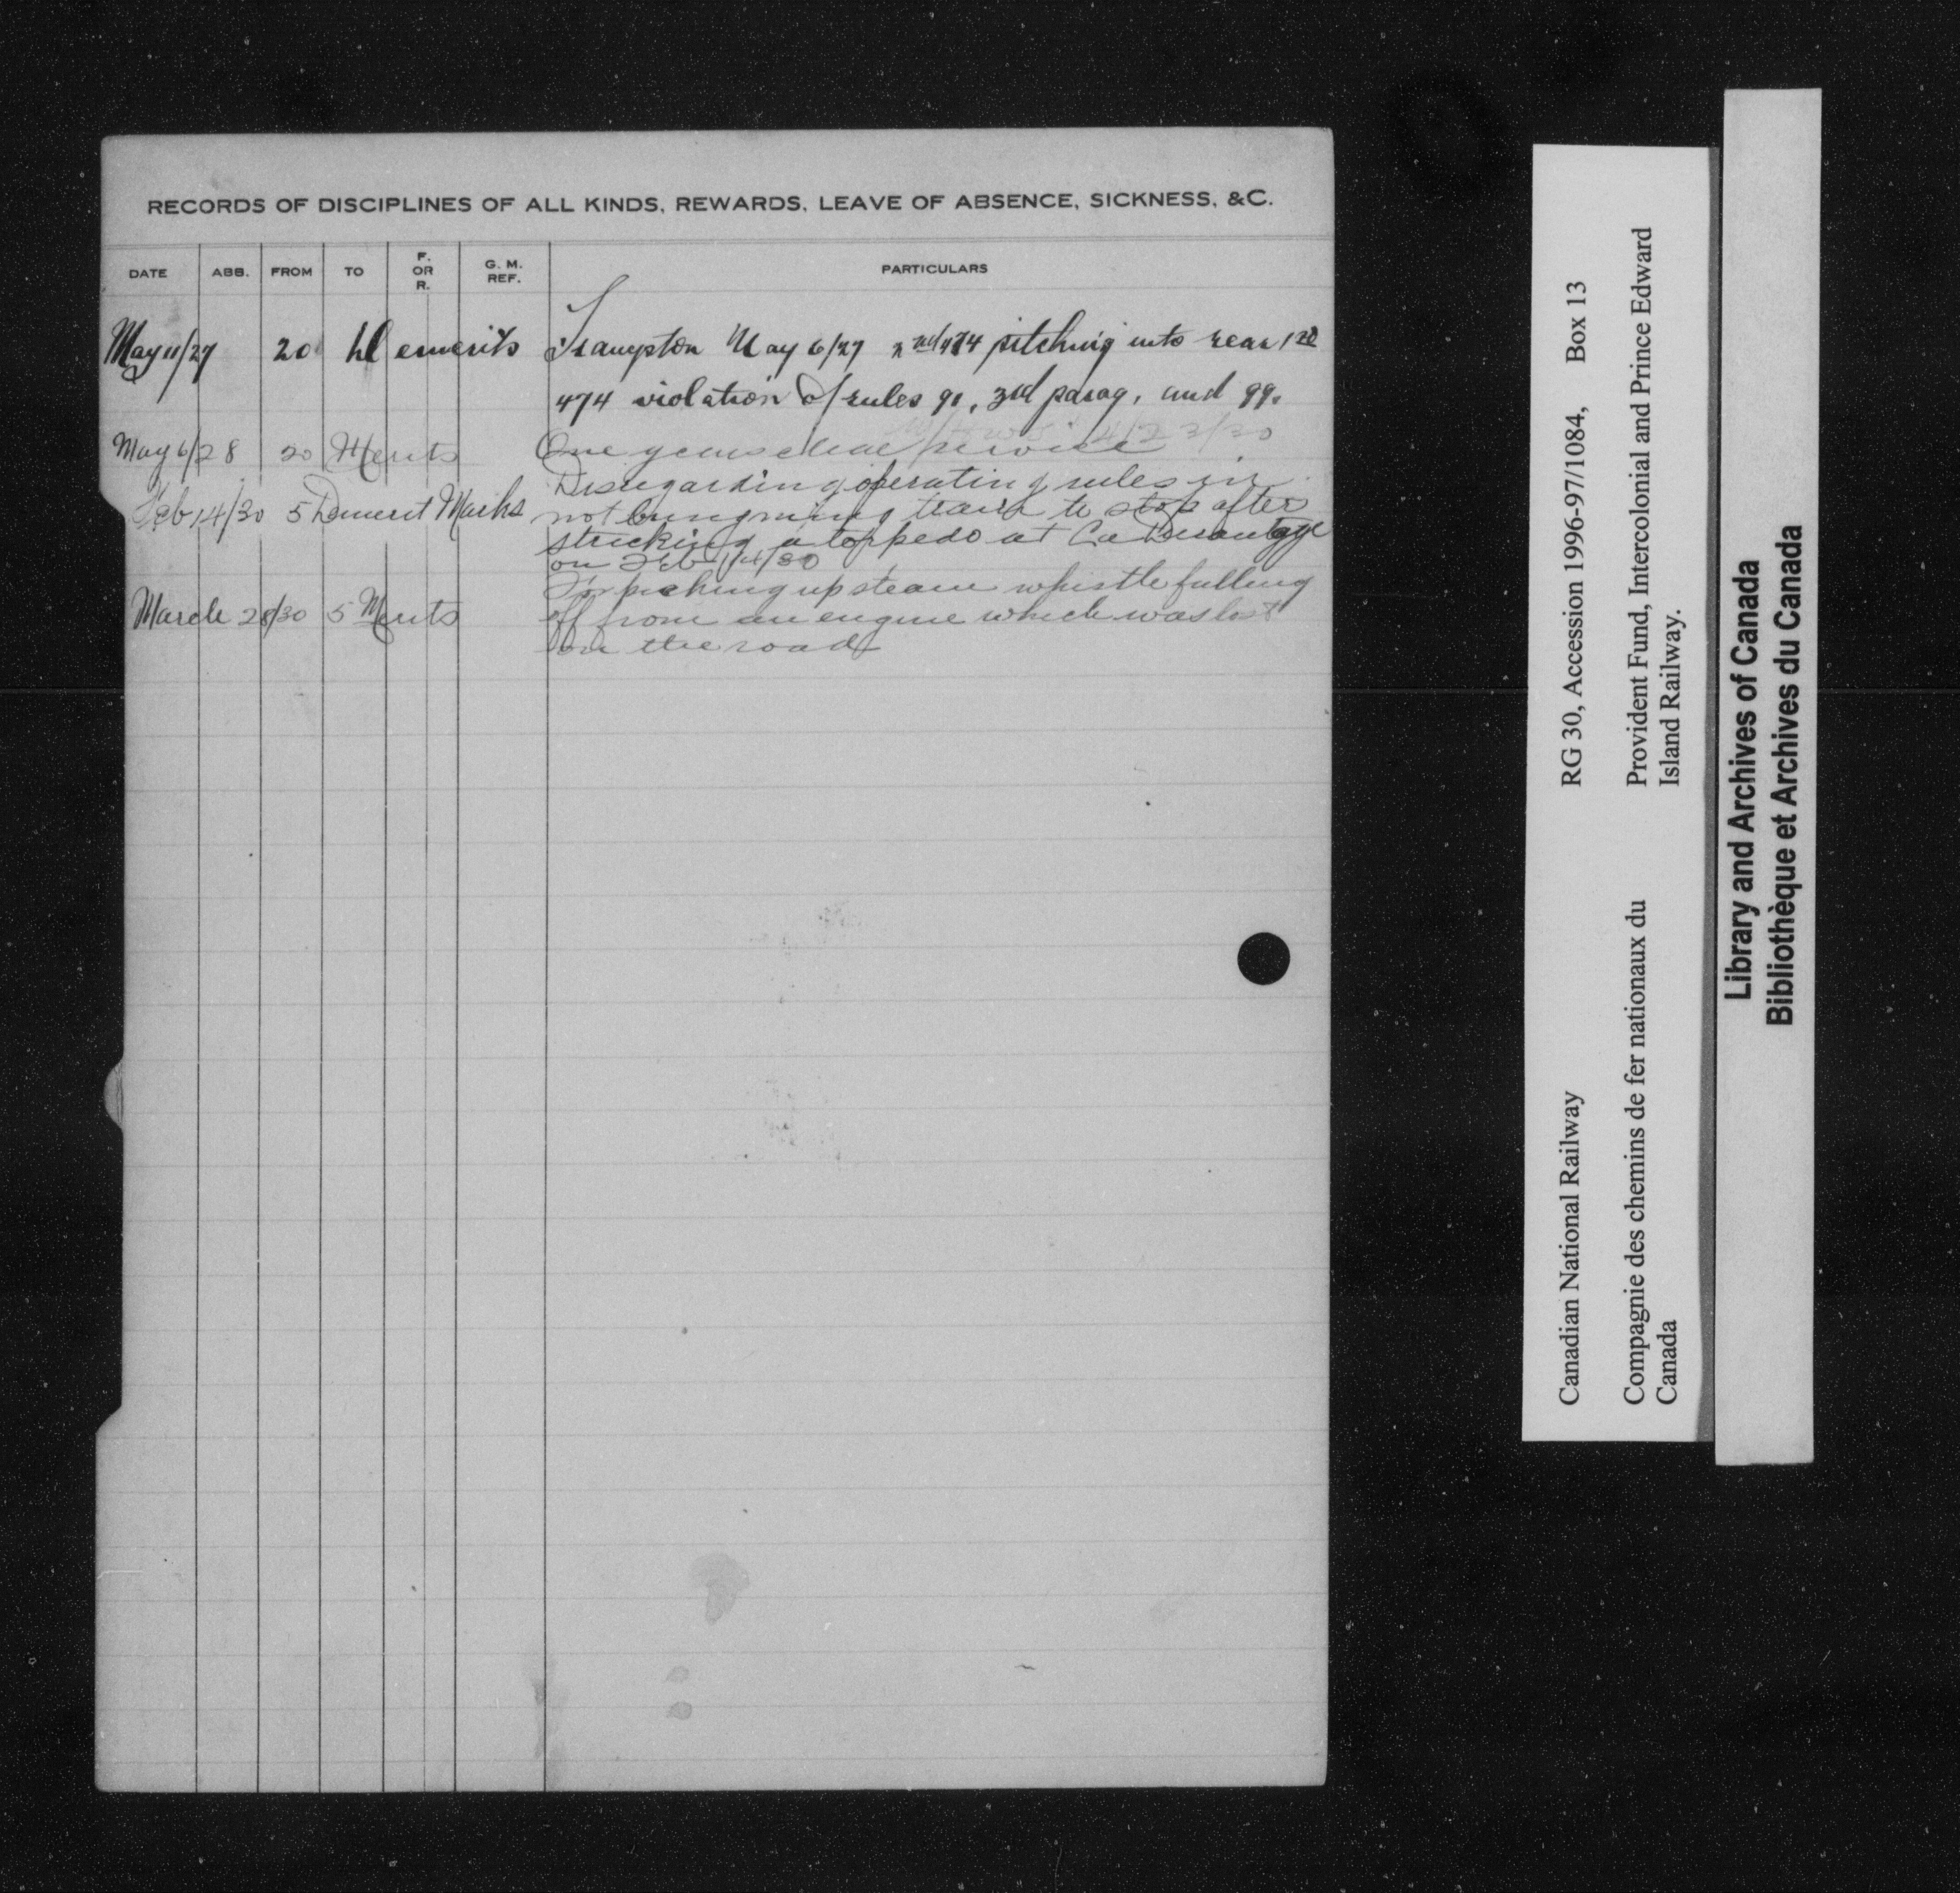 RECORDS OF DISCIPLINES OF ALL KINDS, REWARDS, LEAVE OF ABSENCE, SICKNESS, &C.
DATE ABB. FROM TO F. OR R. G. M. REF. PARTICULARS
May 11/27 20 Demerits Frampton May 6/27 2nd 474 pitching into rear 1st
474 violation of rules 91, 3rd parag, and 99.
May 6/28 20 Merits One years clear service
Disregarding operating rules in
Feb 14/30 5 Demerit Marks not bringing train to stop after
strecking a torpedo at
on Feb 14/30
For picking up steam whistle falling
March 28/30 5 Merits off from an engine which was lost
on the road
Canadian National Railway RG 30, Accession 1996-97/1084, Box 13
Compagnie des chemins de fer nationaux du Canada
Provident Fund, Intercolonial and Prince Edward
Island Railway.
Library and Archives of Canada
Bibliothèque et Archives du Canada